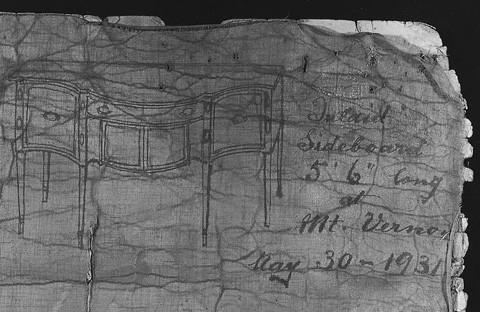 Inlaid
Sideboard
5' 6" long
at
Mt. Vernon
May 30 - 1931